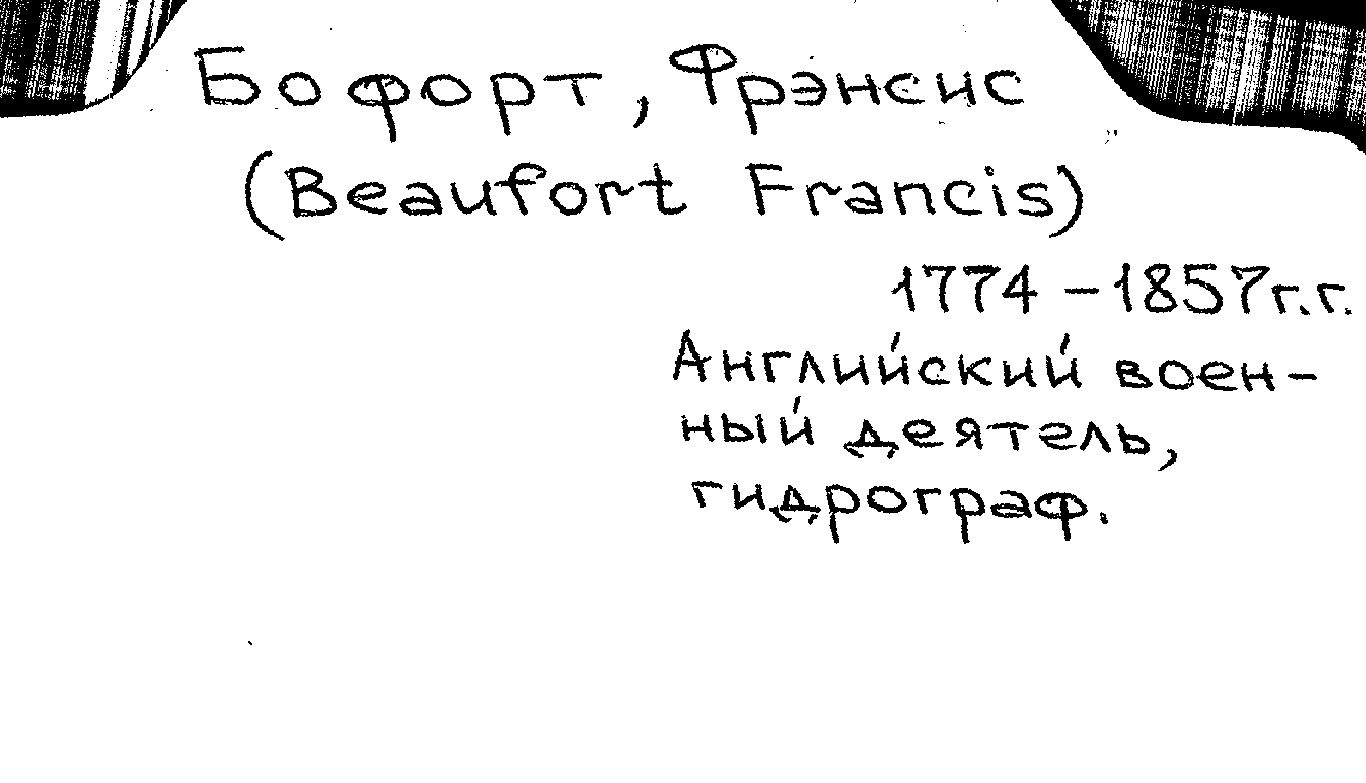 Бофорт, Фрэнсис
(Beaufort Francis)
1774 – 1857 г.г.
Английский воен-
ный деятель,
гидрограф.